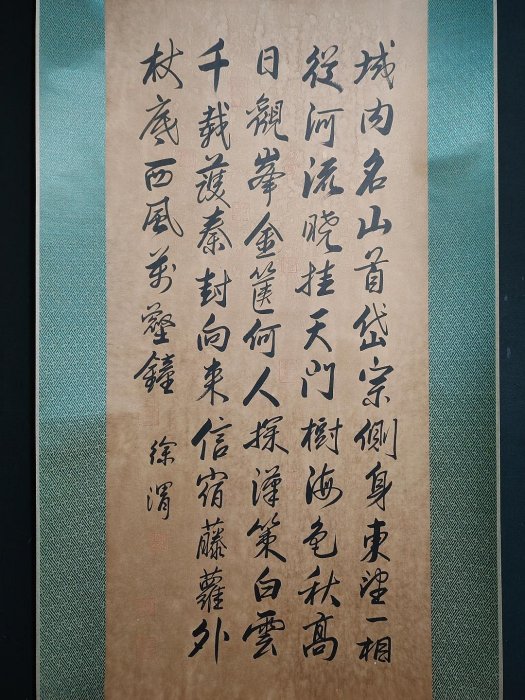 域内名山首岱宗側身東望一相
從河流曉挂天門樹海色秋高
日觀峯金篋何人探漢策白雲
千載護秦封向来信宿藤蘿外
杖底西風萬壑鐘
徐渭